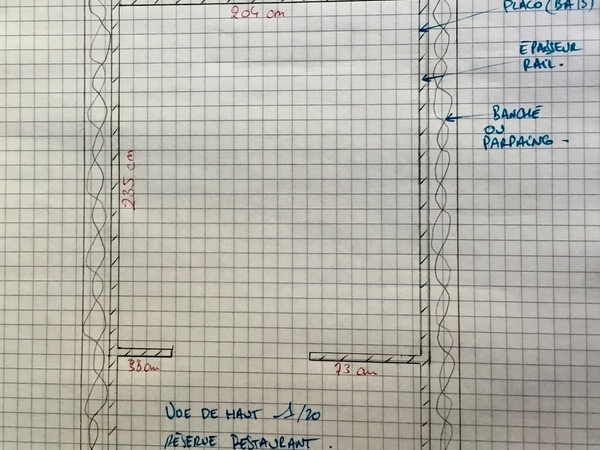 204 cm
PLACO (BA13)
ÉPAISSEUR
RAIL.
BANCHÉ
OU
PARPAING -
235 cm
38 cm
73 cm
VUE DE HAUT 1/20
RÉSERVE RESTAURANT.